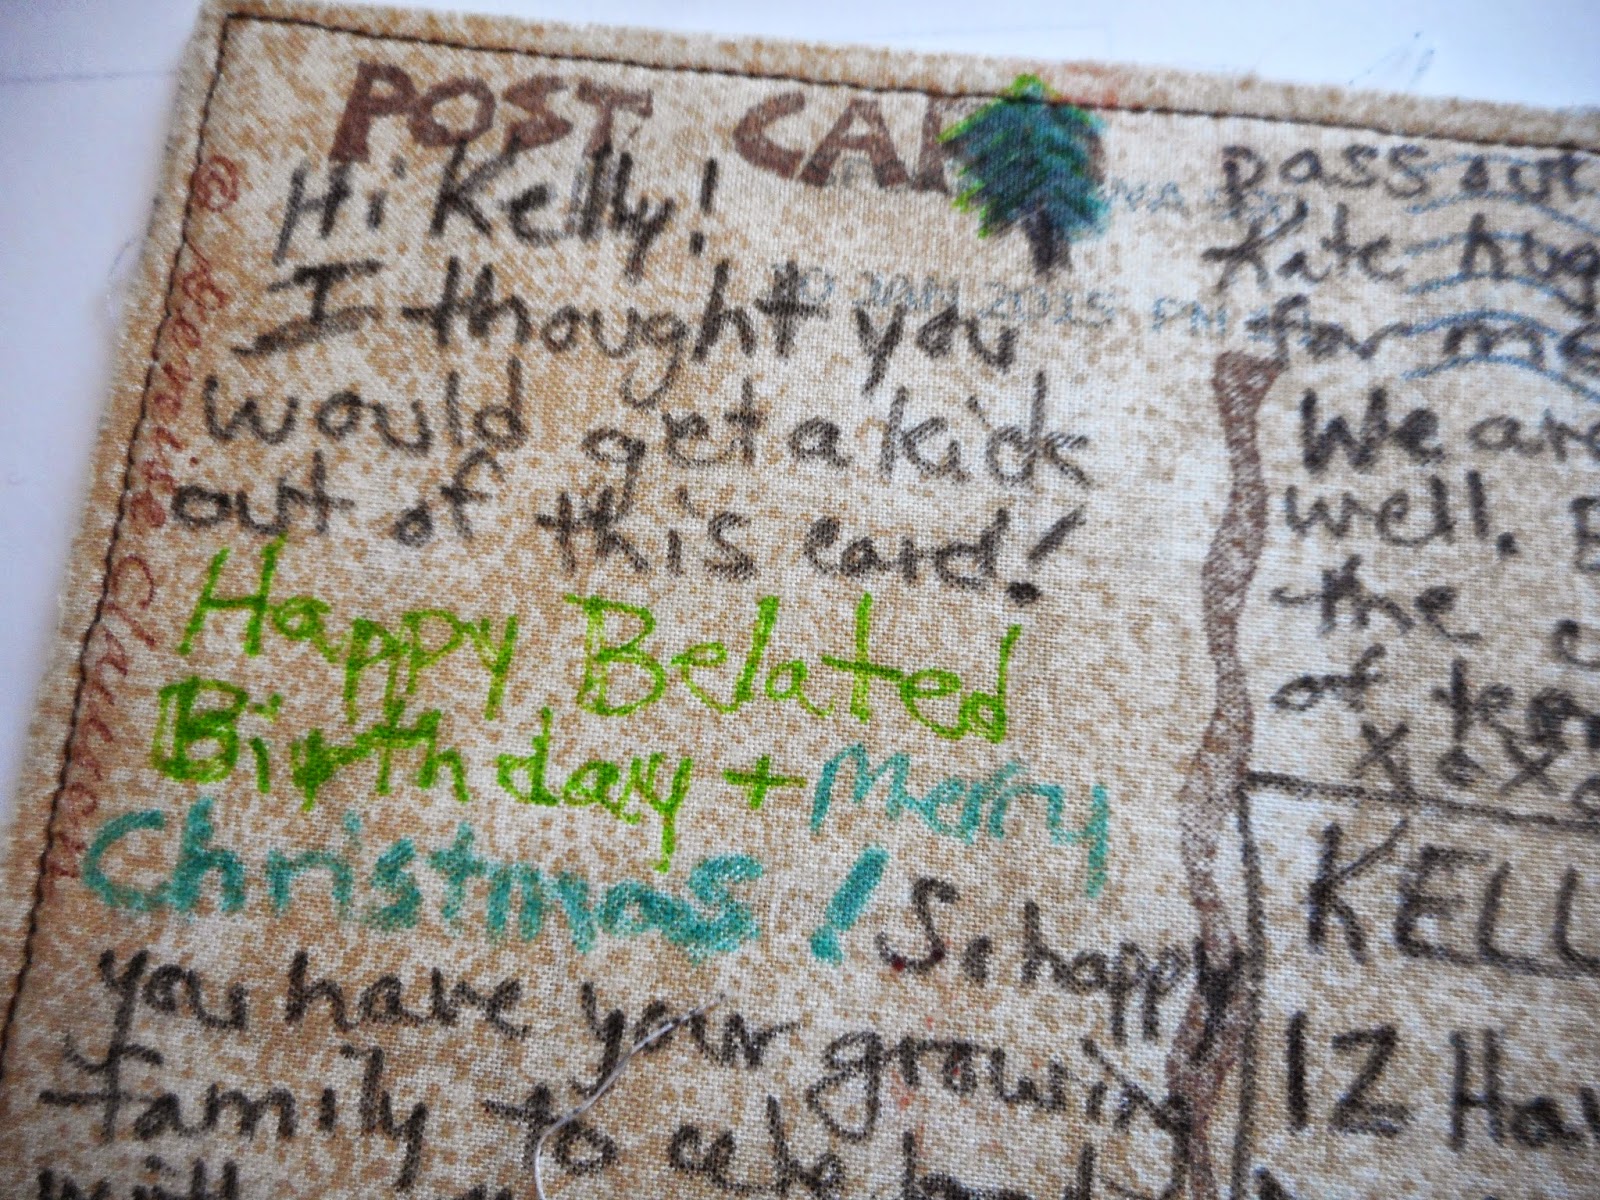 POST CAR
Hi Kelly!
I thought you
would get a kick
out of this card!
Happy Belated
Birthday + Merry
Christmas! So happy
you have your growing
family to celebrate
with
© Denise Clausen
10 JAN 2015 PM
pass out
Kate hug
for me
We are
well.
the
of
xoxo
KELL
12 Hav